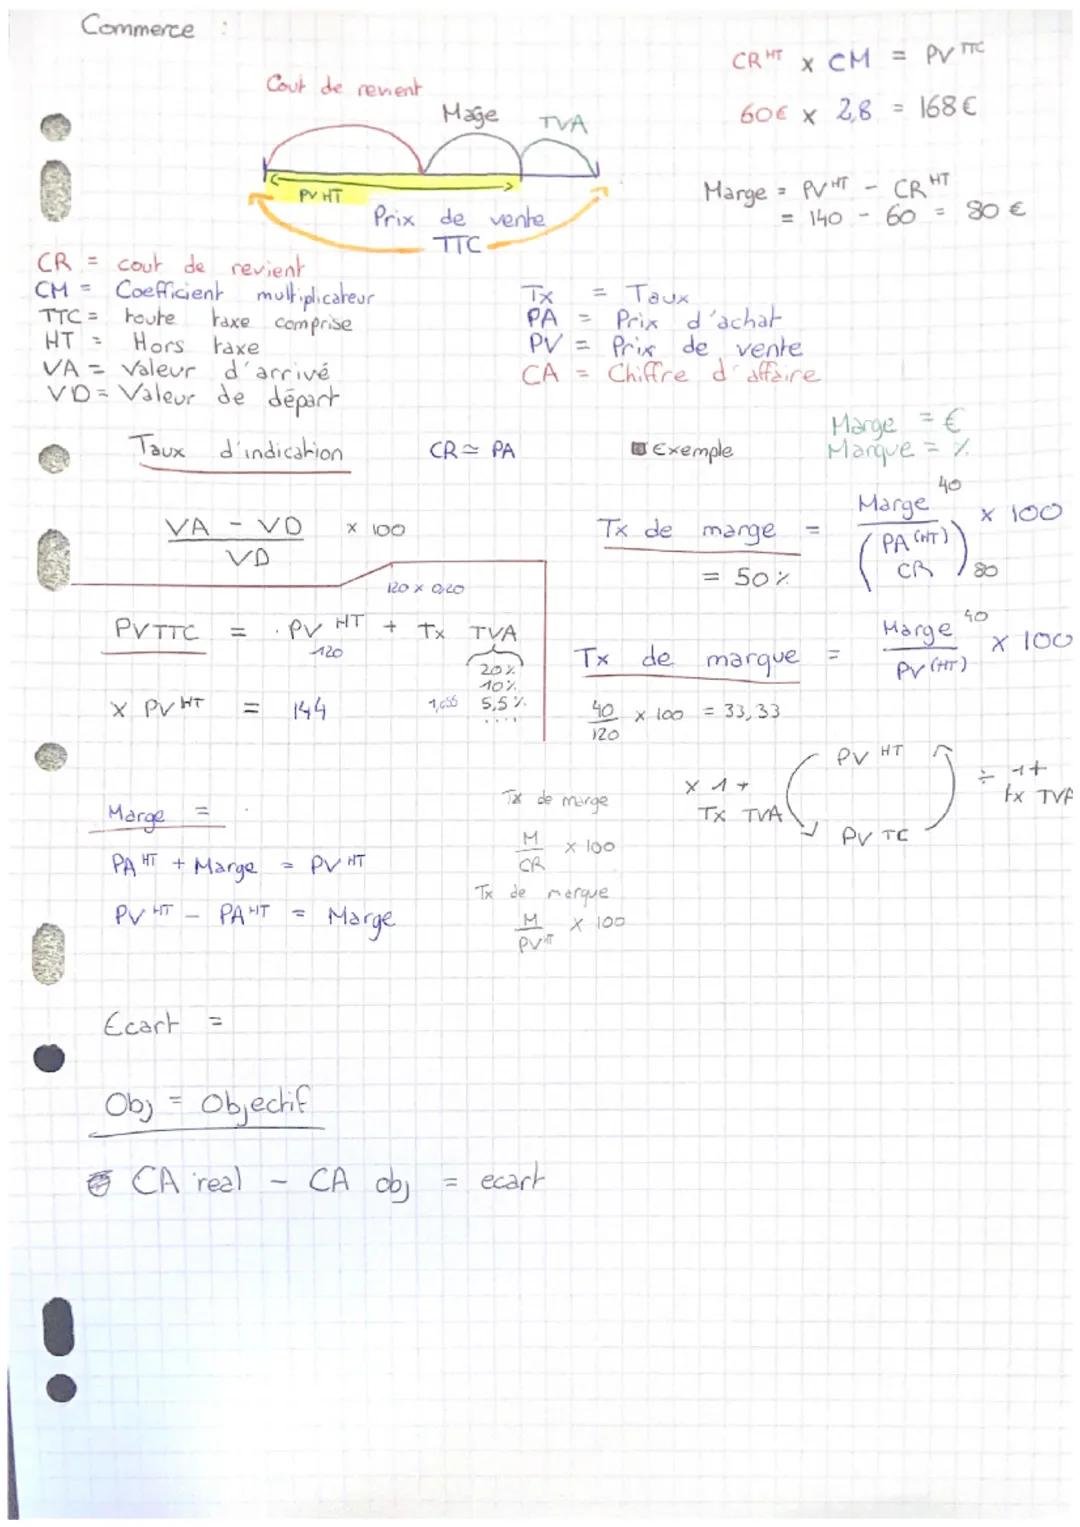 Commerce :
CR HT x CM = PV TTC
Cout de revient
Mage
TVA
60€ x 2,8 = 168€
PV HT
Prix de vente
TTC
Marge = PV HT - CR HT
= 140 - 60 = 80 €
CR = cout de revient
CM = Coefficient multiplicateur
TTC = toute taxe comprise
HT = Hors taxe
VA = Valeur d'arrivé
VD = Valeur de départ
Tx = Taux
PA = Prix d'achat
PV = Prix de vente
CA = Chiffre d'affaire
Taux d'indication
CR ≃ PA
Exemple
Marge = €
Marque = %
VA - VD x 100
VD
Tx de marge = Marge 40 x 100
(PA (HT) CR) 80
= 50%
120 x 0,20
PV TTC = PV HT + Tx TVA
120
20%
10%
5,5%
....
x PV HT = 144
Tx de marque = Marge 40 x 100
PV (HT)
40 x 100 = 33,33
120
PV HT
x 1 +
TX TVA
÷ 1+
tx TVA
PV TC
Marge =
PA HT + Marge = PV HT
PV HT - PA HT = Marge
Tx de marge
M x 100
CR
Tx de marque
M x 100
PV HT
Ecart =
Obj = Objectif
CA real - CA obj = ecart